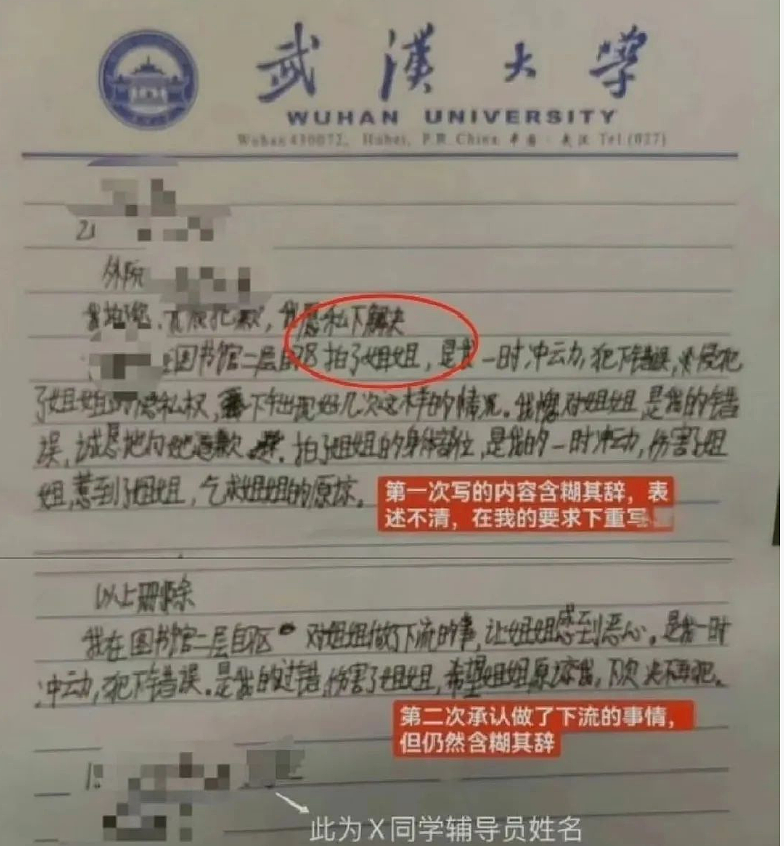 武漢大学
WUHAN UNIVERSITY
Wuhan 430072, Hubei, P.R. China 中国·武汉 Tel.(027)
21
外院
我愿私下解决
在图书馆二层自习区拍了姐姐,是我一时冲动,犯下错误,侵犯
了姐姐的隐私权,出现好几次这样的情况。我愧对姐姐,是我的错
误,诚恳地向她道歉。拍了姐姐的身体部位,是我的一时冲动,伤害了姐
姐,惹到了姐姐,乞求姐姐的原谅。
第一次写的内容含糊其辞,表
述不清,在我的要求下重写
以上删除
我在图书馆二层自习区对姐姐做了下流的事,让姐姐感到恶心。是我一时
冲动,犯下错误。是我的过错,伤害了姐姐,希望姐姐原谅我,下次决不再犯。
第二次承认做了下流的事情,
但仍然含糊其辞
此为X同学辅导员姓名